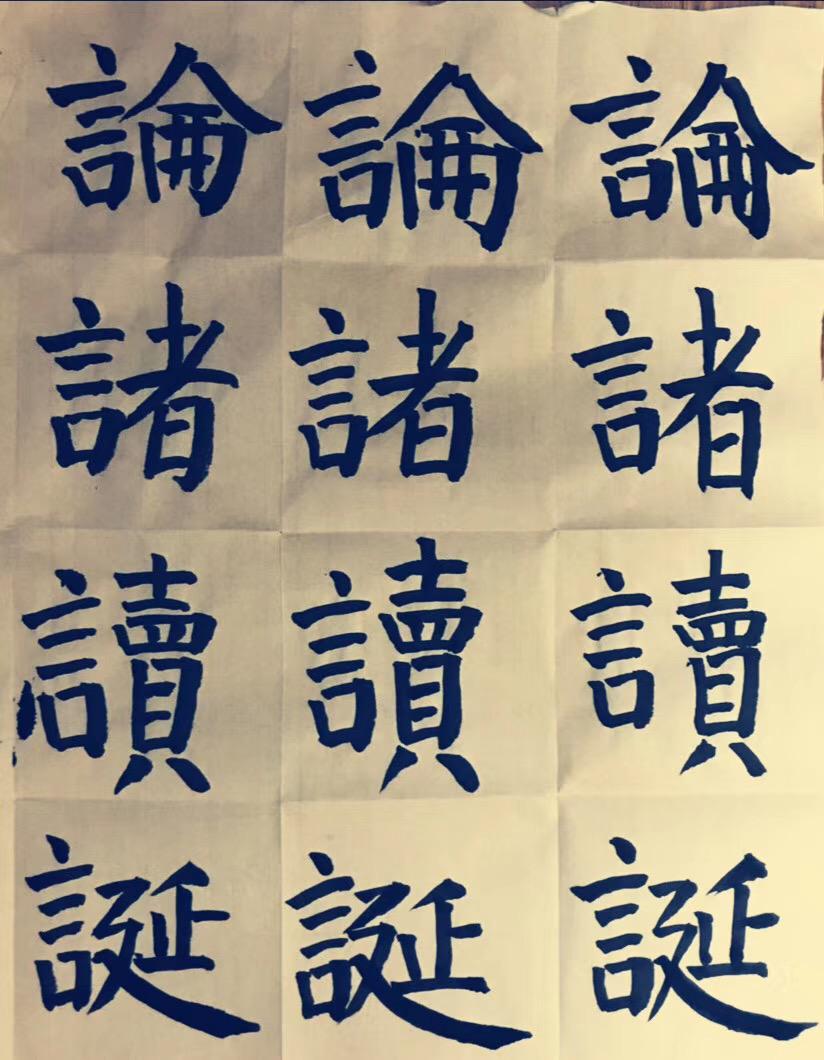 論論論
諸諸諸
讀讀讀
誕誕誕